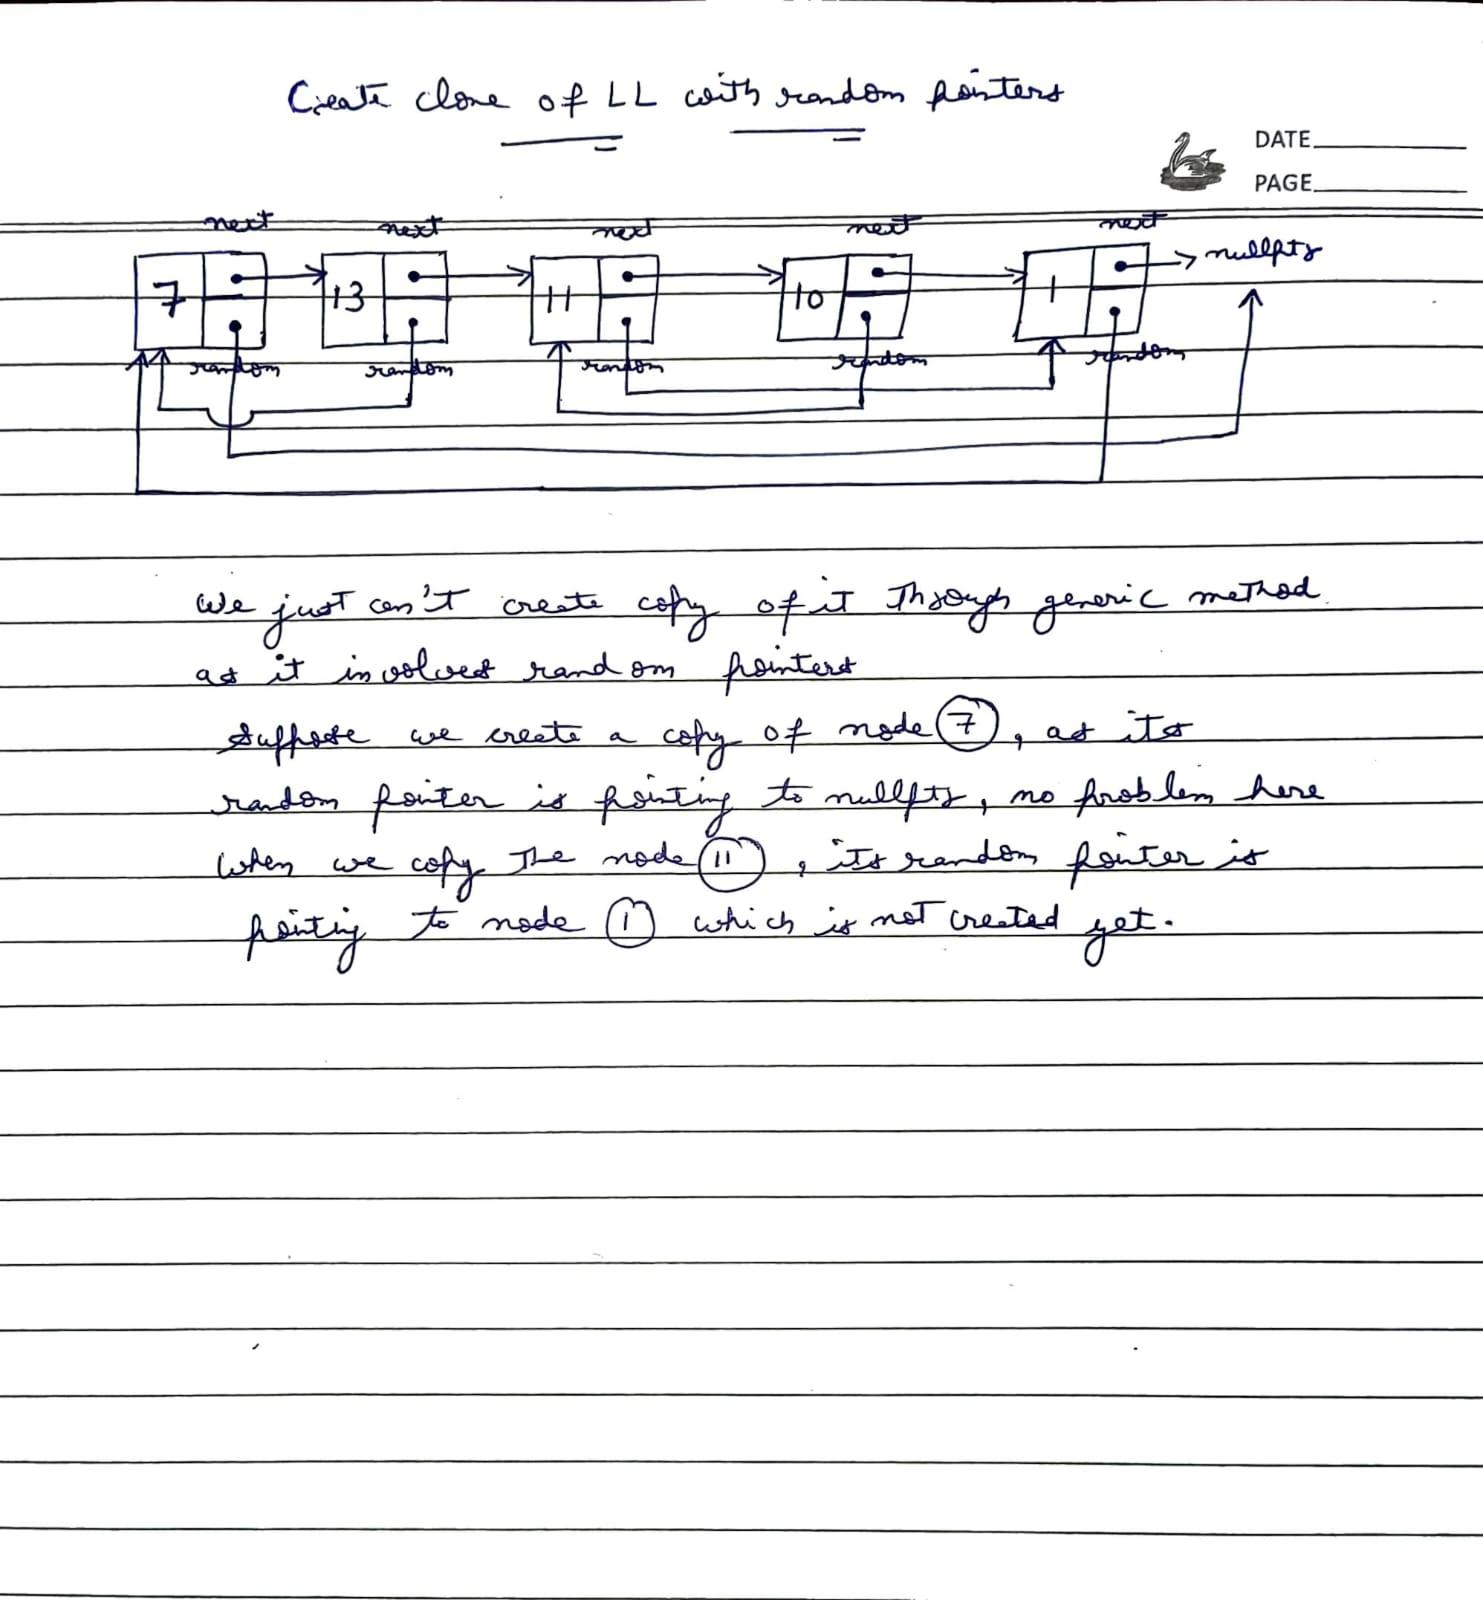 Create clone of LL with random pointers
DATE
PAGE
next next next next next
7 13 11 10 1 nullptr
random random random random random
We just can't create copy of it through generic method
as it involves random pointers
Suppose we create a copy of node 7, as its
random pointer is pointing to nullptr, no problem here
When we copy the node 11, its random pointer is
pointing to node 1 which is not created yet.